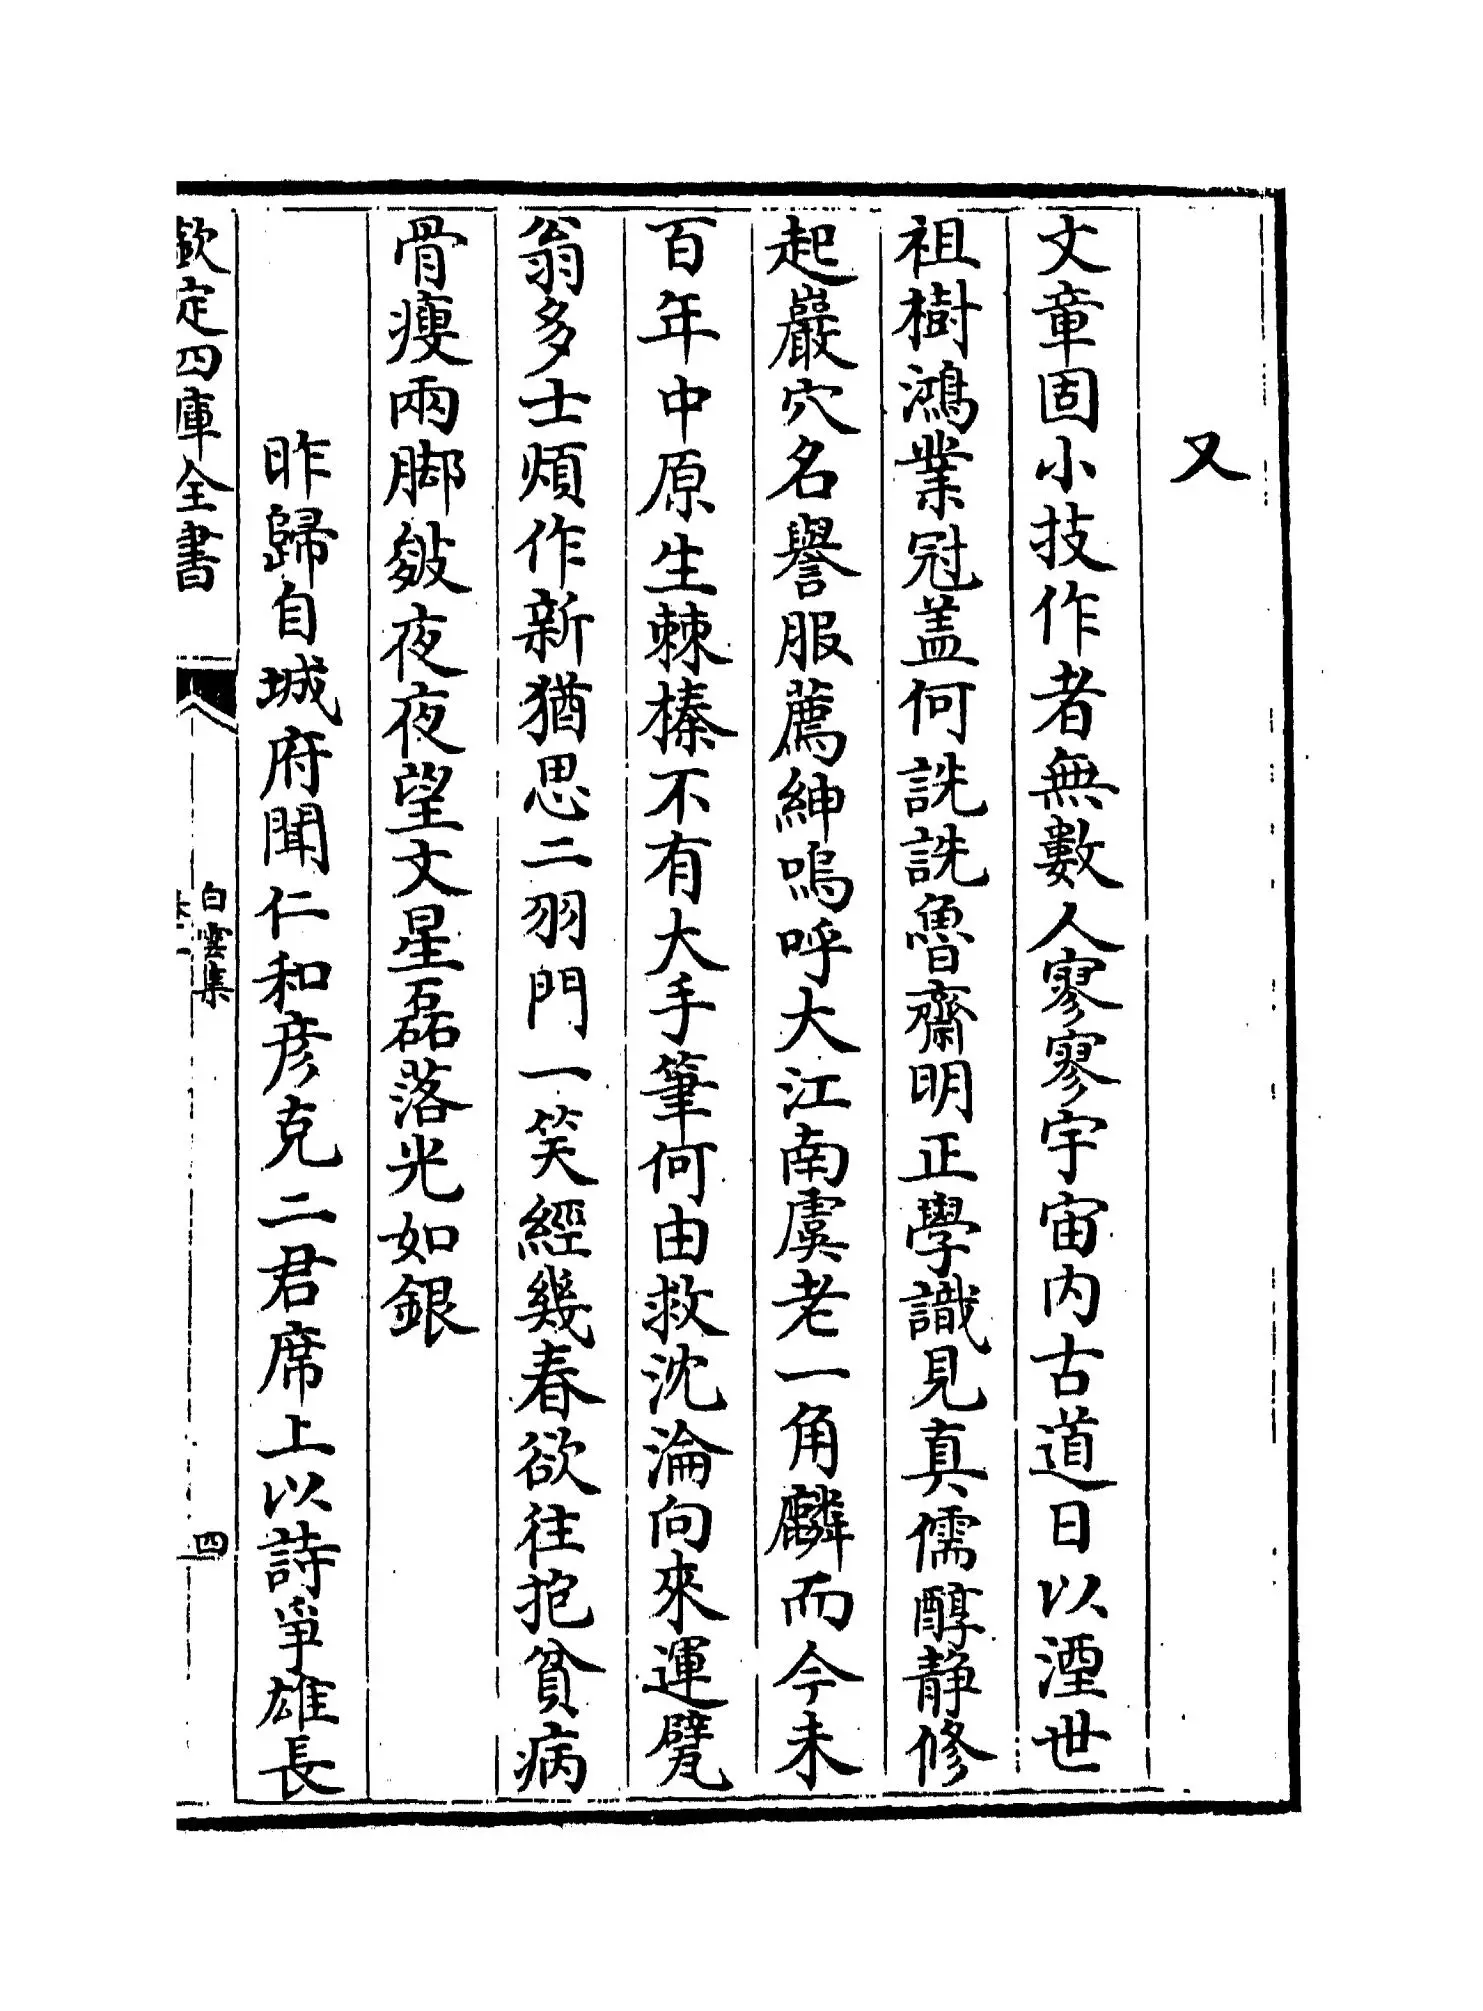 又
文章固小技作者無數人寥寥宇宙内古道日以湮世
祖樹鴻業冠盖何詵詵魯齋明正學識見真儒醇静修
起巖穴名譽服薦紳嗚呼大江南虞老一角麟而今未
百年中原生棘榛不有大手筆何由救沈淪向來運甓
翁多士煩作新猶思二羽門一笑經幾春欲往抱貧病
骨瘦兩脚皴夜夜望文星磊落光如銀
昨歸自城府聞仁和彦克二君席上以詩爭雄長
欽定四庫全書
白雲集
四